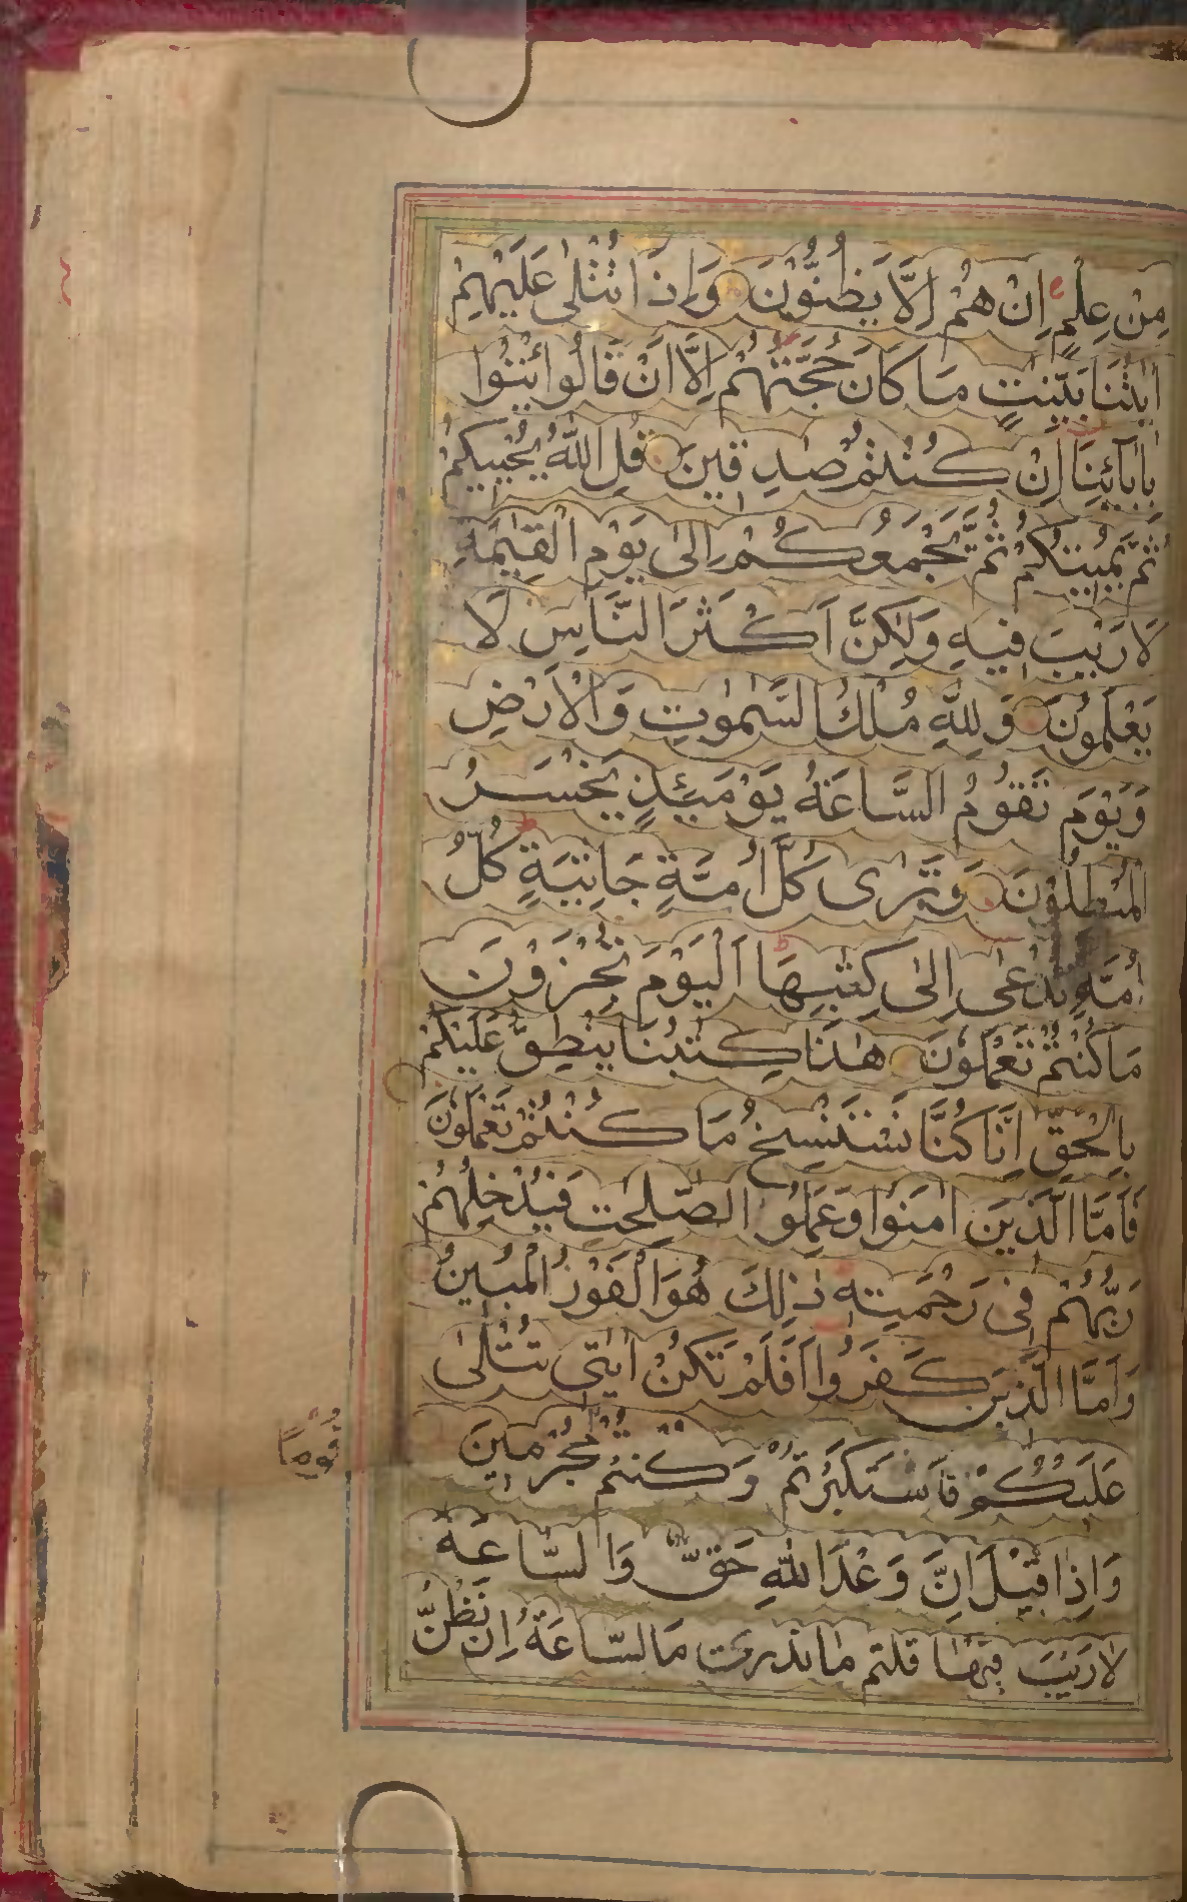 مِنْ عِلْمٍ اِنْ هُمْ اِلَّا يَظُنُّوْنَ وَاِذَا تُتْلٰى عَلَيْهِمْ
اٰيٰتُنَا بَيِّنٰتٍ مَا كَانَ حُجَّتَهُمْ اِلَّا اَنْ قَالُوا ائْتُوْا
بِاٰبَآئِنَا اِنْ كُنْتُمْ صٰدِقِيْنَ قُلِ اللّٰهُ يُحْيِيْكُمْ
ثُمَّ يُمِيْتُكُمْ ثُمَّ يَجْمَعُكُمْ اِلٰى يَوْمِ الْقِيٰمَةِ
لَا رَيْبَ فِيْهِ وَلٰكِنَّ اَكْثَرَ النَّاسِ لَا
يَعْلَمُوْنَ وَلِلّٰهِ مُلْكُ السَّمٰوٰتِ وَالْاَرْضِ
وَيَوْمَ تَقُوْمُ السَّاعَةُ يَوْمَئِذٍ يَخْسَرُ
الْمُبْطِلُوْنَ وَتَرٰى كُلَّ اُمَّةٍ جَاثِيَةٍ كُلُّ
اُمَّةٍ تُدْعٰى اِلٰى كِتٰبِهَا اَلْيَوْمَ تُجْزَوْنَ
مَا كُنْتُمْ تَعْمَلُوْنَ هٰذَا كِتٰبُنَا يَنْطِقُ عَلَيْكُمْ
بِالْحَقِّ اِنَّا كُنَّا نَسْتَنْسِخُ مَا كُنْتُمْ تَعْمَلُوْنَ
فَاَمَّا الَّذِيْنَ اٰمَنُوْا وَعَمِلُوا الصّٰلِحٰتِ فَيُدْخِلُهُمْ
رَبُّهُمْ فِى رَحْمَتِهٖ ذٰلِكَ هُوَ الْفَوْزُ الْمُبِيْنُ
وَاَمَّا الَّذِيْنَ كَفَرُوْا اَفَلَمْ تَكُنْ اٰيٰتِى تُتْلٰى
عَلَيْكُمْ فَاسْتَكْبَرْتُمْ وَكُنْتُمْ مُجْرِمِيْنَ
قَوْمًا
وَاِذَا قِيْلَ اِنَّ وَعْدَ اللّٰهِ حَقٌّ وَالسَّاعَةُ
لَا رَيْبَ فِيْهَا قُلْتُمْ مَا نَدْرِىْ مَا السَّاعَةُ اِنْ نَظُنُّ